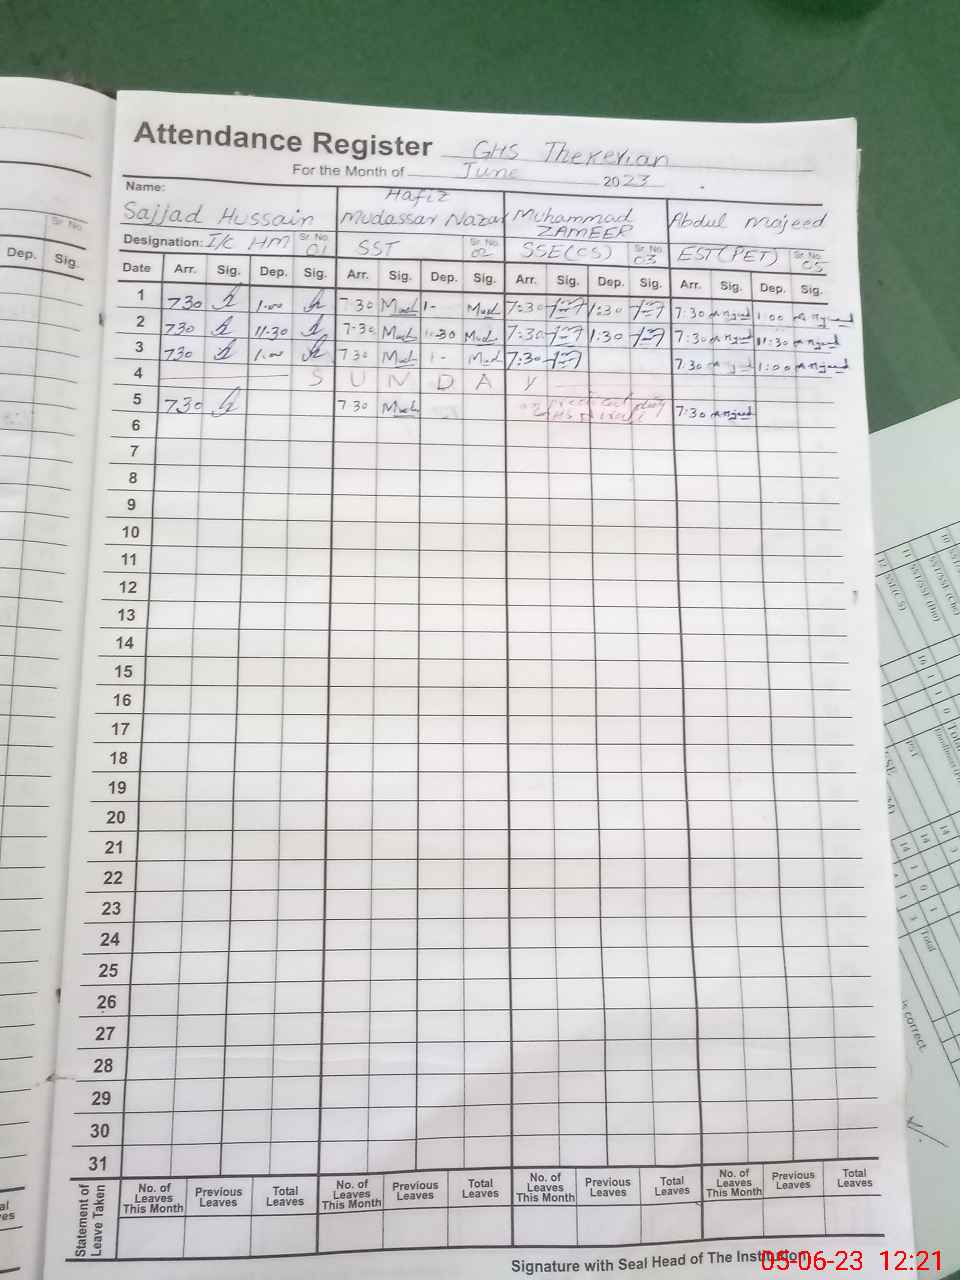 Attendance Register GHS Thekerian
For the Month of June 2023
Name: Sajjad Hussain Hafiz Mudassar Nazar Muhammad ZAMEER Abdul Majeed
Designation: I/C HM Sr No. 01 SST Sr No. 02 SSE(CS) Sr No. 03 EST(PET) Sr No. 05
Date Arr. Sig. Dep. Sig. Arr. Sig. Dep. Sig. Arr. Sig. Dep. Sig. Arr. Sig. Dep. Sig.
1 7 30 1.00 7 30 1- 7:30 1:30 7:30 1:00
2 7 30 11.30 7-30 11-30 7:30 1:30 7:30 11:30
3 7 30 1.00 7 30 1- 7:30 7:30 1:00
4 S U N D A Y
5 7 30 7 30 7:30
6
7
8
9
10
11
12
13
14
15
16
17
18
19
20
21
22
23
24
25
26
27
28
29
30
31
Statement of Leave Taken
No. of Leaves This Month Previous Leaves Total Leaves No. of Leaves This Month Previous Leaves Total Leaves No. of Leaves This Month Previous Leaves Total Leaves No. of Leaves This Month Previous Leaves Total Leaves
Signature with Seal Head of The Institution
05-06-23 12:21
Sr No.
Dep. Sig.
is correct.
Total